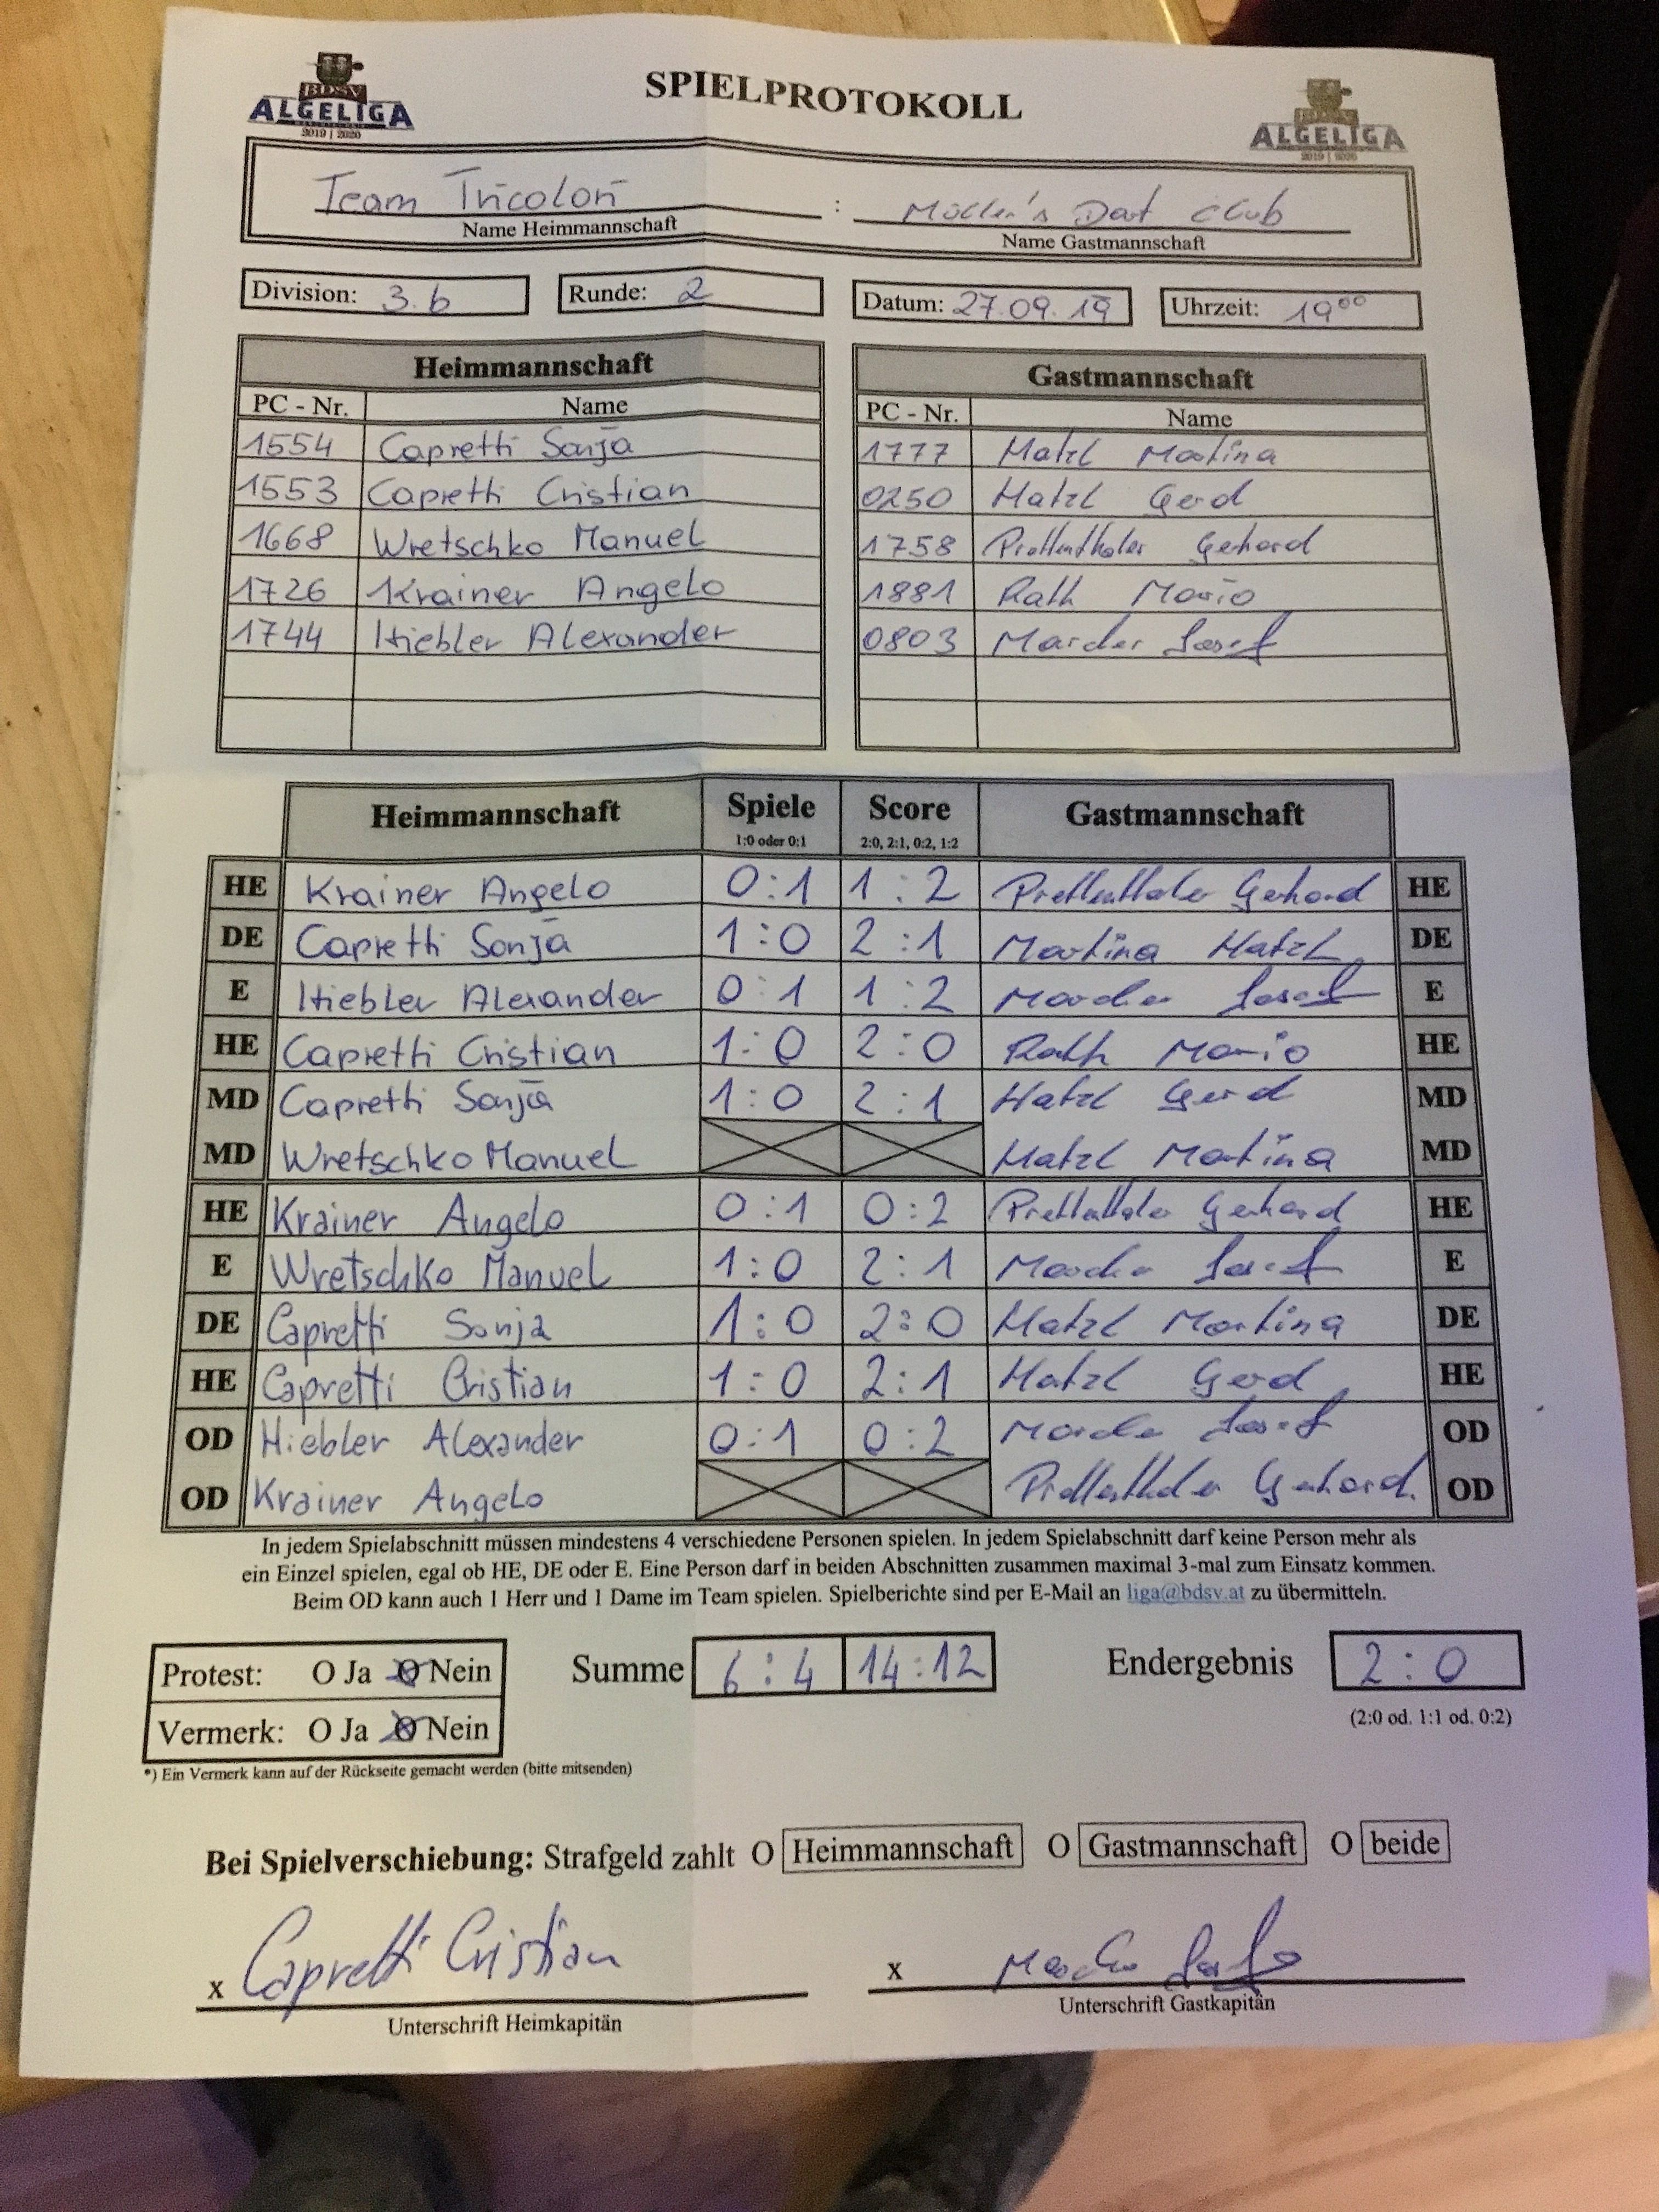 BDSV
ALGELIGA
2019 | 2020
SPIELPROTOKOLL
BDSV
ALGELIGA
2019 | 2020
Team Tricolori : Müller's Dart Club
Name Heimmannschaft Name Gastmannschaft
Division: 3.b Runde: 2 Datum: 27.09.19 Uhrzeit: 19⁰⁰
Heimmannschaft Gastmannschaft
PC - Nr. Name PC - Nr. Name
1554 Capretti Sonja 1777 Hatzl Martina
1553 Capretti Cristian 0250 Hatzl Gerd
1668 Wretschko Manuel 1758 Prettenthaler Gerhard
1726 Krainer Angelo 1881 Rath Mario
1744 Hiebler Alexander 0803 Marder Josef
Heimmannschaft Spiele Score Gastmannschaft
1:0 oder 0:1 2:0, 2:1, 0:2, 1:2
HE Krainer Angelo 0:1 1:2 Prettenthaler Gerhard HE
DE Capretti Sonja 1:0 2:1 Martina Hatzl DE
E Hiebler Alexander 0:1 1:2 Marder Josef E
HE Capretti Cristian 1:0 2:0 Rath Mario HE
MD Capretti Sonja 1:0 2:1 Hatzl Gerd MD
MD Wretschko Manuel Hatzl Martina MD
HE Krainer Angelo 0:1 0:2 Prettenthaler Gerhard HE
E Wretschko Manuel 1:0 2:1 Marder Josef E
DE Capretti Sonja 1:0 2:0 Hatzl Martina DE
HE Capretti Cristian 1:0 2:1 Hatzl Gerd HE
OD Hiebler Alexander 0:1 0:2 Marder Josef OD
OD Krainer Angelo Prettenthaler Gerhard. OD
In jedem Spielabschnitt müssen mindestens 4 verschiedene Personen spielen. In jedem Spielabschnitt darf keine Person mehr als
ein Einzel spielen, egal ob HE, DE oder E. Eine Person darf in beiden Abschnitten zusammen maximal 3-mal zum Einsatz kommen.
Beim OD kann auch 1 Herr und 1 Dame im Team spielen. Spielberichte sind per E-Mail an liga@bdsv.at zu übermitteln.
Protest: O Ja O Nein Summe 6:4 14:12 Endergebnis 2:0
Vermerk: O Ja O Nein (2:0 od. 1:1 od. 0:2)
*) Ein Vermerk kann auf der Rückseite gemacht werden (bitte mitsenden)
Bei Spielverschiebung: Strafgeld zahlt O Heimmannschaft O Gastmannschaft O beide
x Capretti Cristian x Marder Josef
Unterschrift Heimkapitän Unterschrift Gastkapitän